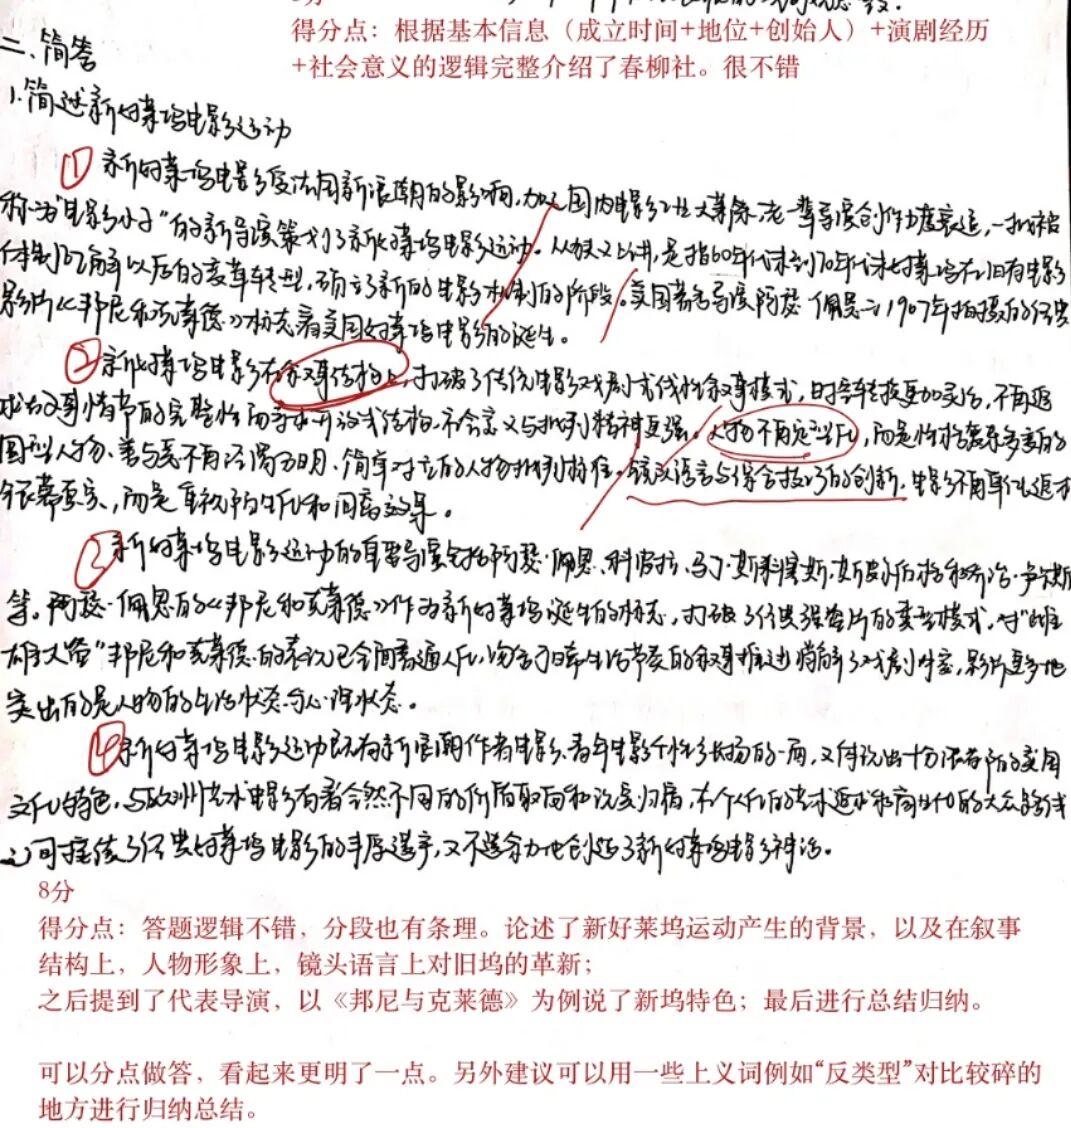 得分点：根据基本信息（成立时间+地位+创始人）+演剧经历
+社会意义的逻辑完整介绍了春柳社。很不错
二、简答
1.简述新好莱坞电影运动
① 新好莱坞电影受法国新浪潮的影响，加之国内电影工业大萧条，老一辈导演创作力度衰退，一批被
称为“电影小子”的新导演策划了新好莱坞电影运动。从狭义上讲，是指60年代末到70年代末好莱坞在旧有电影
体制瓦解以后的变革转型，确立了新的电影机制的阶段。美国著名导演阿瑟·佩恩于1907年拍摄的
影片《邦尼和克莱德》标志着美国好莱坞电影的诞生。
② 新好莱坞电影在叙事结构上，打破了传统电影戏剧式线性叙事模式，时空转换更加灵活，不再追
求故事情节的完整性而寻求开放式结构，社会意义与批判精神更强。人物不再定型化，而是性格复杂多变的
圆型人物，善与恶不再泾渭分明、简单对立的人物批判标准。镜头语言与综合技巧的创新，电影不再单纯追求
银幕真实，而是重视陌生化和间离效果。
③ 新好莱坞电影运动的重要导演包括阿瑟·佩恩、科波拉、马丁·斯科塞斯、斯皮尔伯格和乔治·卢卡斯
等。阿瑟·佩恩的《邦尼和克莱德》作为新好莱坞诞生的标志，打破了传统强盗片的类型模式，对“雌
雄大盗”邦尼和克莱德的表现已全面普通人化，包含了日常生活节奏的叙事推进消解了戏剧内容，影片更多地
突出的是人物的生活状态与心理状态。
④ 新好莱坞电影运动既有新浪潮作者电影、青年电影个性张扬的一面，又体现出十分浓郁的美国
文化特色，与欧洲艺术电影有着全然不同的价值取向和视点归宿，在个人化的艺术追求和商业化的大众
之间接续了传统好莱坞电影的丰厚遗产，又不遗余力地创造了新好莱坞电影神话。
8分
得分点：答题逻辑不错，分段也有条理。论述了新好莱坞运动产生的背景，以及在叙事
结构上，人物形象上，镜头语言上对旧坞的革新；
之后提到了代表导演，以《邦尼与克莱德》为例说了新坞特色；最后进行总结归纳。
可以分点做答，看起来更明了一点。另外建议可以用一些上义词例如“反类型”对比较碎的
地方进行归纳总结。